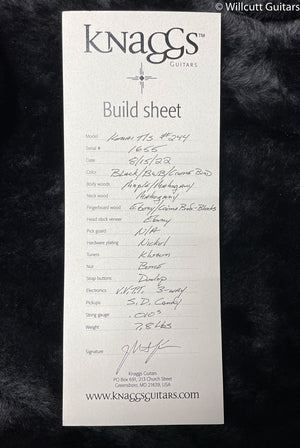 © Willcutt Guitars
KNAGGS™
GUITARS
Build sheet
Model Kenai T/S #244
Serial # 1655
Date 8/15/22
Color Black/B&B/Creme Bind
Body woods Maple/Mahogany
Neck wood Mahogany
Fingerboard wood Ebony/Creme Bind-Blocks
Head stock veneer Ebony
Pick guard N/A
Hardware plating Nickel
Tuners Kluson
Nut Bone
Strap buttons Dunlop
Electronics V.V.T.T. 3-way
Pickups S.D. Candy
String gauge .010s
Weight 7.8 lbs
Signature
Knaggs Guitars
PO Box 691, 213 Church Street
Greensboro, MD 21639, USA
www.knaggsguitars.com